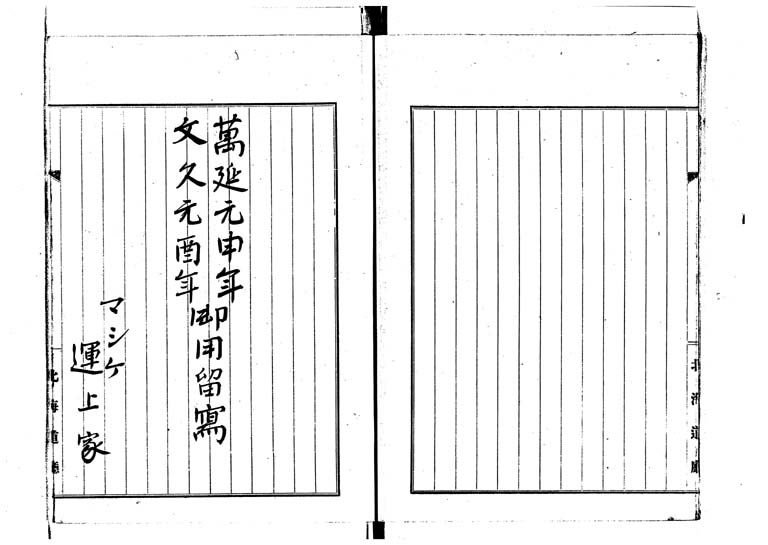 北海道廳
萬延元申年
文久元酉年
御用留寫
マシケ
運上家
北海道廳